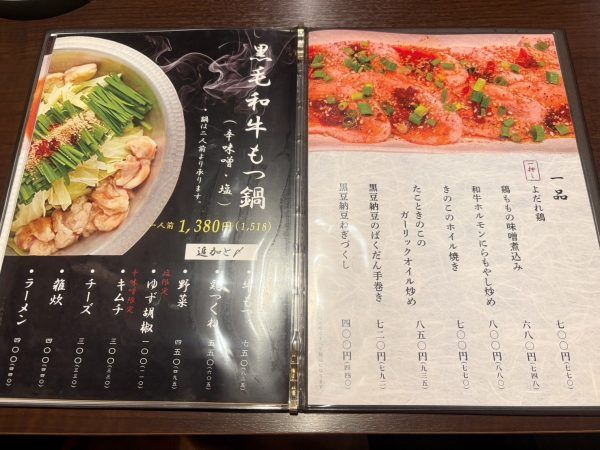 一品
一押し
よだれ鶏 七〇〇円(七七〇)
鶏ももの味噌煮込み 六八〇円(七四八)
和牛ホルモンにらもやし炒め 八〇〇円(八八〇)
きのこのホイル焼き 七〇〇円(七七〇)
たこときのこの
ガーリックオイル炒め 八五〇円(九三五)
黒豆納豆のばくだん手巻き 七二〇円(七九二)
黒豆納豆ねぎづくし 四〇〇円(四四〇)
黒毛和牛もつ鍋
(辛味噌・塩)
・鍋は二人前より承ります。
一人前 1,380円(1,518)
追加と〆
・牛もつ 七五〇(八二五)
・鶏つくね 五五〇(六〇五)
・野菜 四五〇(四九五)
塩限定
・ゆず胡椒 一〇〇(一一〇)
辛味噌限定
・キムチ 三〇〇(三三〇)
・チーズ 三〇〇(三三〇)
・雑炊 四〇〇(四四〇)
・ラーメン 四〇〇(四四〇)